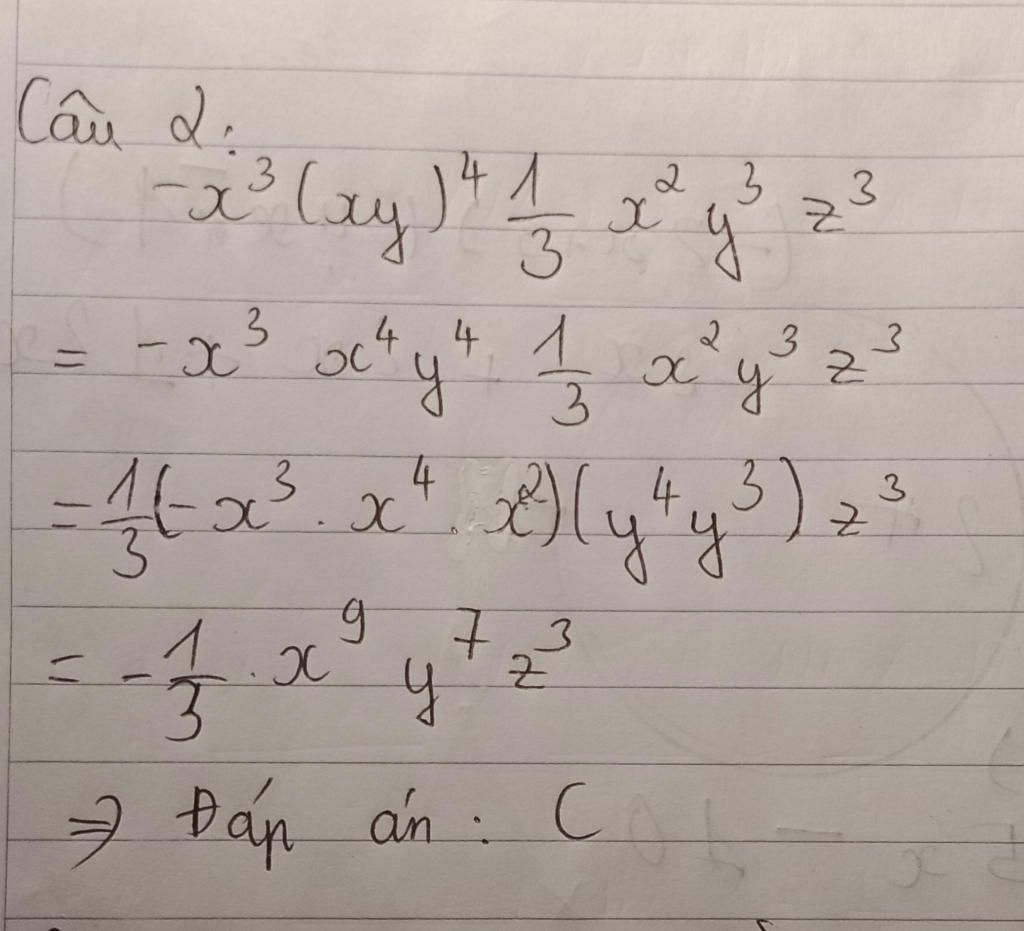 Câu 2:
-x³(xy)⁴ 1/3 x² y³ z³
= -x³ x⁴y⁴ 1/3 x²y³ z³
= 1/3(-x³ . x⁴ . x²)(y⁴y³) z³
= -1/3 . x⁹ y⁷ z³
⇒ Đáp án : C